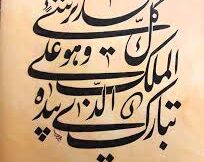 تبارك الذي بيده
الملك وهو على
كل شئ قدير